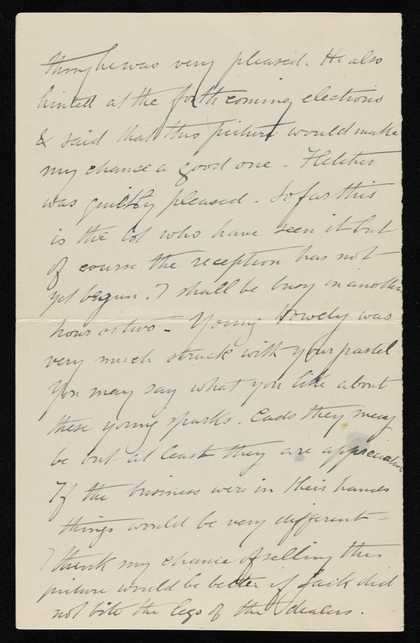 though he was very pleased. He also
hinted at the forthcoming elections
& said that this picture would make
my chance a good one - Fletcher
was quietly pleased - So far this
is the lot who have seen it but
of course the reception has not
yet begun. I shall be busy in another
hour or two - Young was
very much struck with your pastel
You may say what you like about
these young sparks. Cads they may
be but at least they are appreciative
If the business were in their hands
things would be very different -
I think my chance of selling this
picture would be better if Jack did
not bite the legs of the dealers.